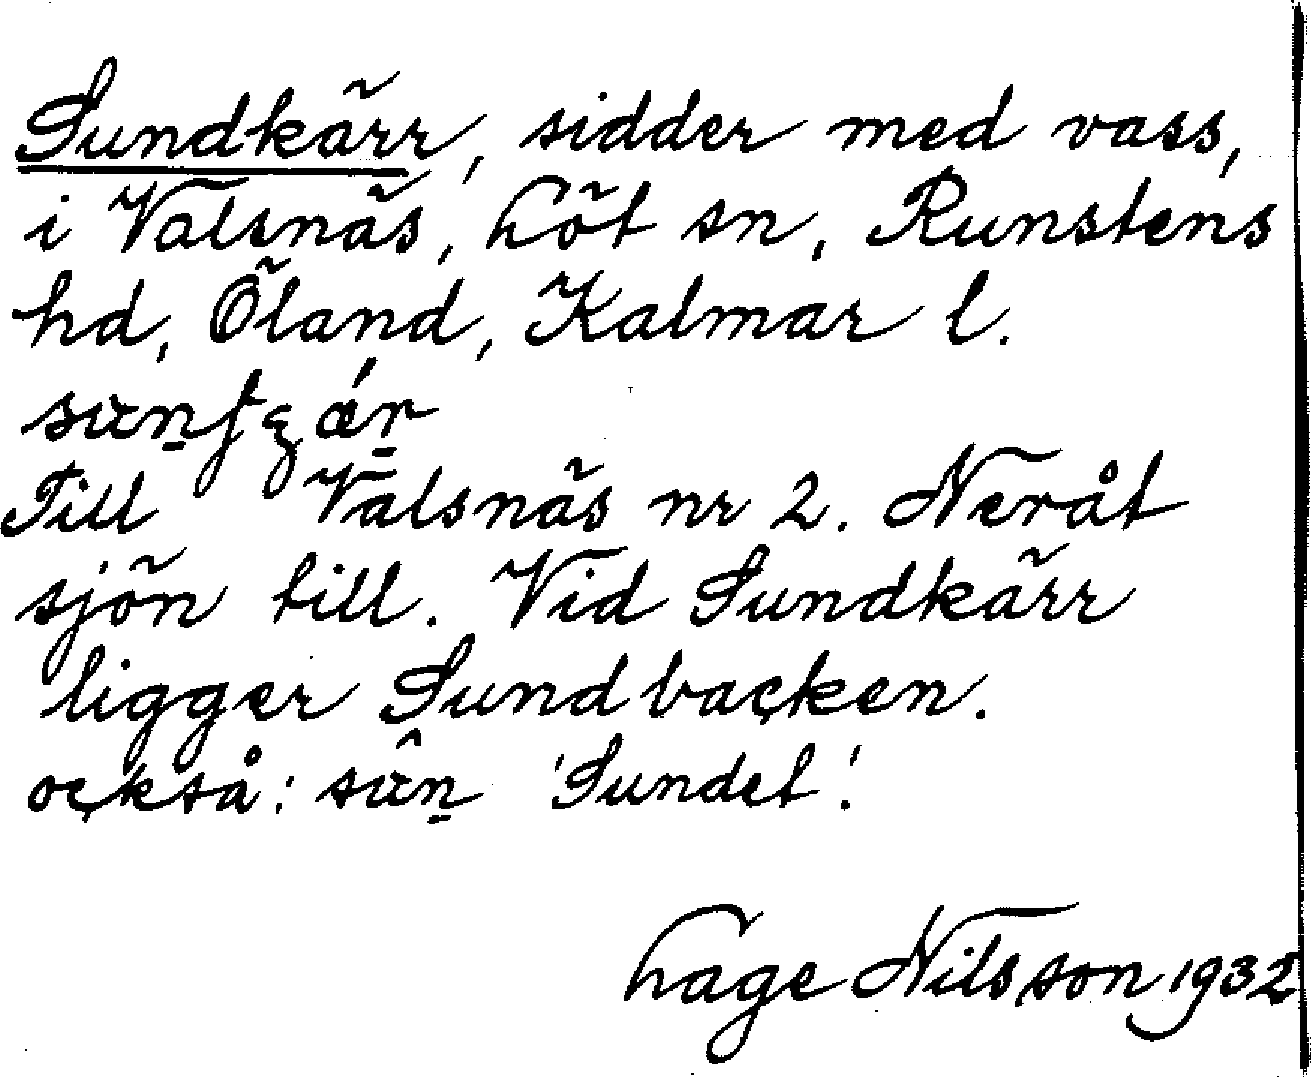 Sundkärr, sidder med vass,
i Valsnäs, Löt sn, Runstens
hd, Öland, Kalmar l.
Till Valsnäs nr 2. Neråt
sjön till. Vid Sundkärr
ligger Sundbacken.
också: 'Sundet'.
Hage Nilsson 1932